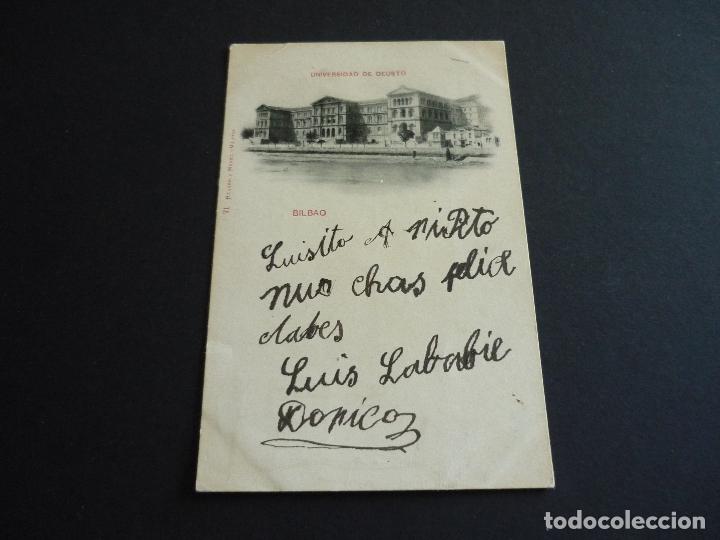 UNIVERSIDAD DE DEUSTO
BILBAO
Luisito A
nuo chas
dabes
Luis Lababie
Donico
todocoleccion